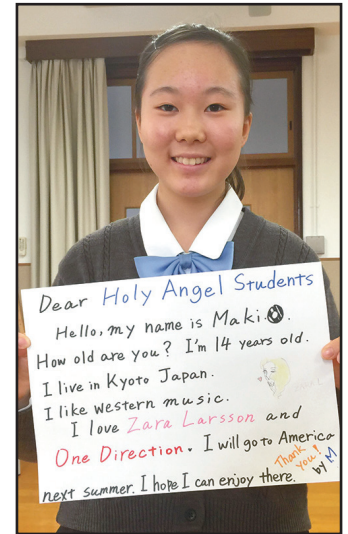 Dear Holy Angel Students
Hello, my name is Maki.
How old are you? I'm 14 years old.
I live in Kyoto Japan.
I like western music.
I love Zara Larsson and
One Direction. I will go to America
next summer. I hope I can enjoy there.
Thank you!
by M